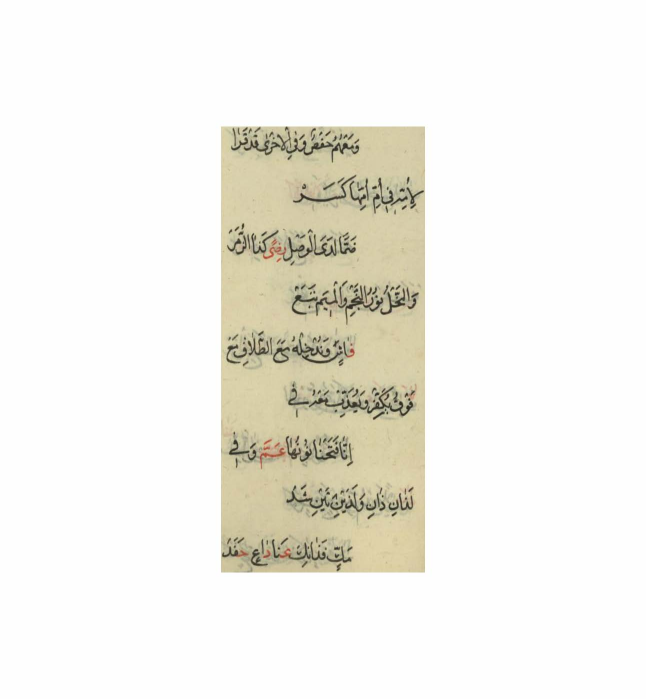 وَمَعْهُمُ حَفْصٌ وَفِي الْاُخْرٰى قَدْ قَرَا
لِاُمِّهِ فِي اُمِّ اُمِّهَا كَسَرْ
ضَمًّا لَدَى الْوَصْلِ رِضًى كَذَا الزُّمَرْ
وَالنَّحْلُ نُوْرُ النَّجْمِ وَالْمِيْمَ تَبِعْ
فَاشٍ وَنُدْخِلْهُ مَعَ الطَّلَاقِ مَعْ
فَوْقُ يُكَفِّرْ وَيُعَذِّبْ مَعْهُ فِي
اِنَّا فَتَحْنَا نُوْنُهَا عَمَّ وَفِي
لَذَانِ ذَانِ وَلَذَيْنِ تَيْنِ شَدْ
مَكٍّ فَذَانِكَ غِنَا دَاعٍ حَفَدْ